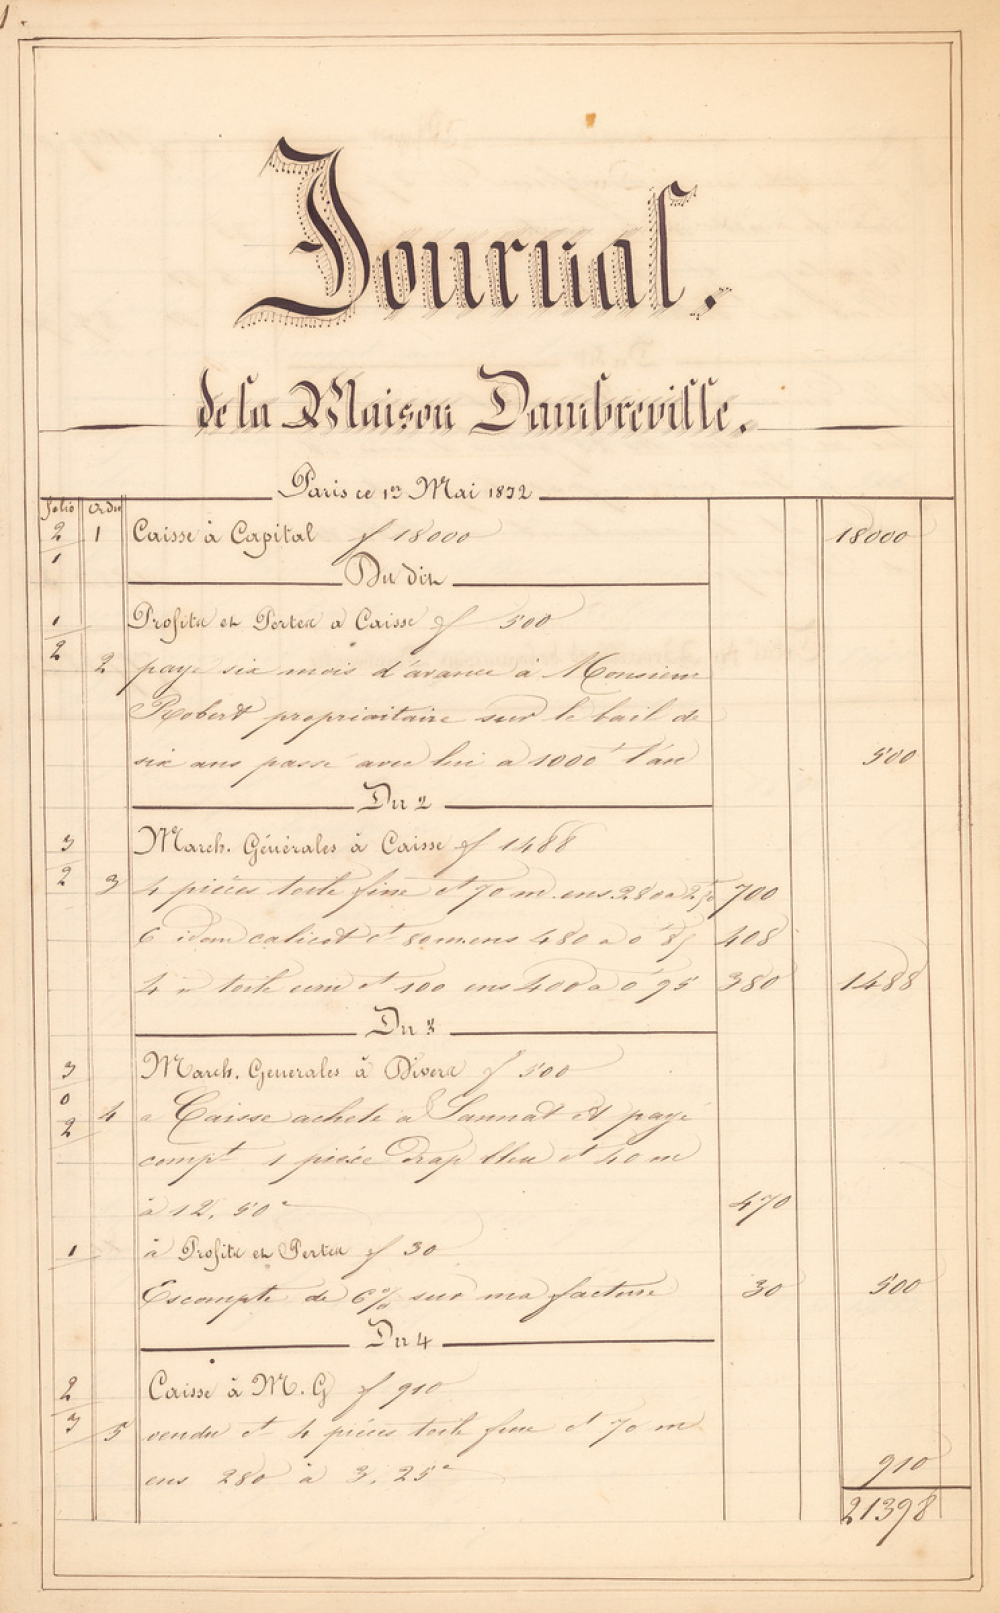 Journal.
de la Maison Dambreville.
Paris ce 1er Mai 1832
folio ordre
2 1 Caisse à Capital f 18000 18000
1
Du dit
1 Profits et Pertes a Caisse f 500
2 2 payé six mois d'avance à Monsieur
Robert propriaitaire sur le bail de
six ans passé avec lui a 1000 f l'an 500
Du 2
3 March. Générales à Caisse f 1488
2 3 4 pièces toile fine ct 70 m ens 280 a 2f50 700
6 idem calicot ct 80 m ens 480 a 0f85 408
4 " toile ct 100 ens 400 a 0f95 380 1488
Du 3
3 March. Generales à Divers f 500
0
2 4 a Caisse acheté a Lannat et payé
compt 1 pièce Drap bleu ct 40 m
à 12. 50c 470
1 à Profits et Pertes f 30
Escompte de 6% sur ma facture 30 500
Du 4
2 Caisse à M. G f 910
3 5 vendu ct 4 pièces toile fine ct 70 m
ens 280 à 3. 25c 910
21398